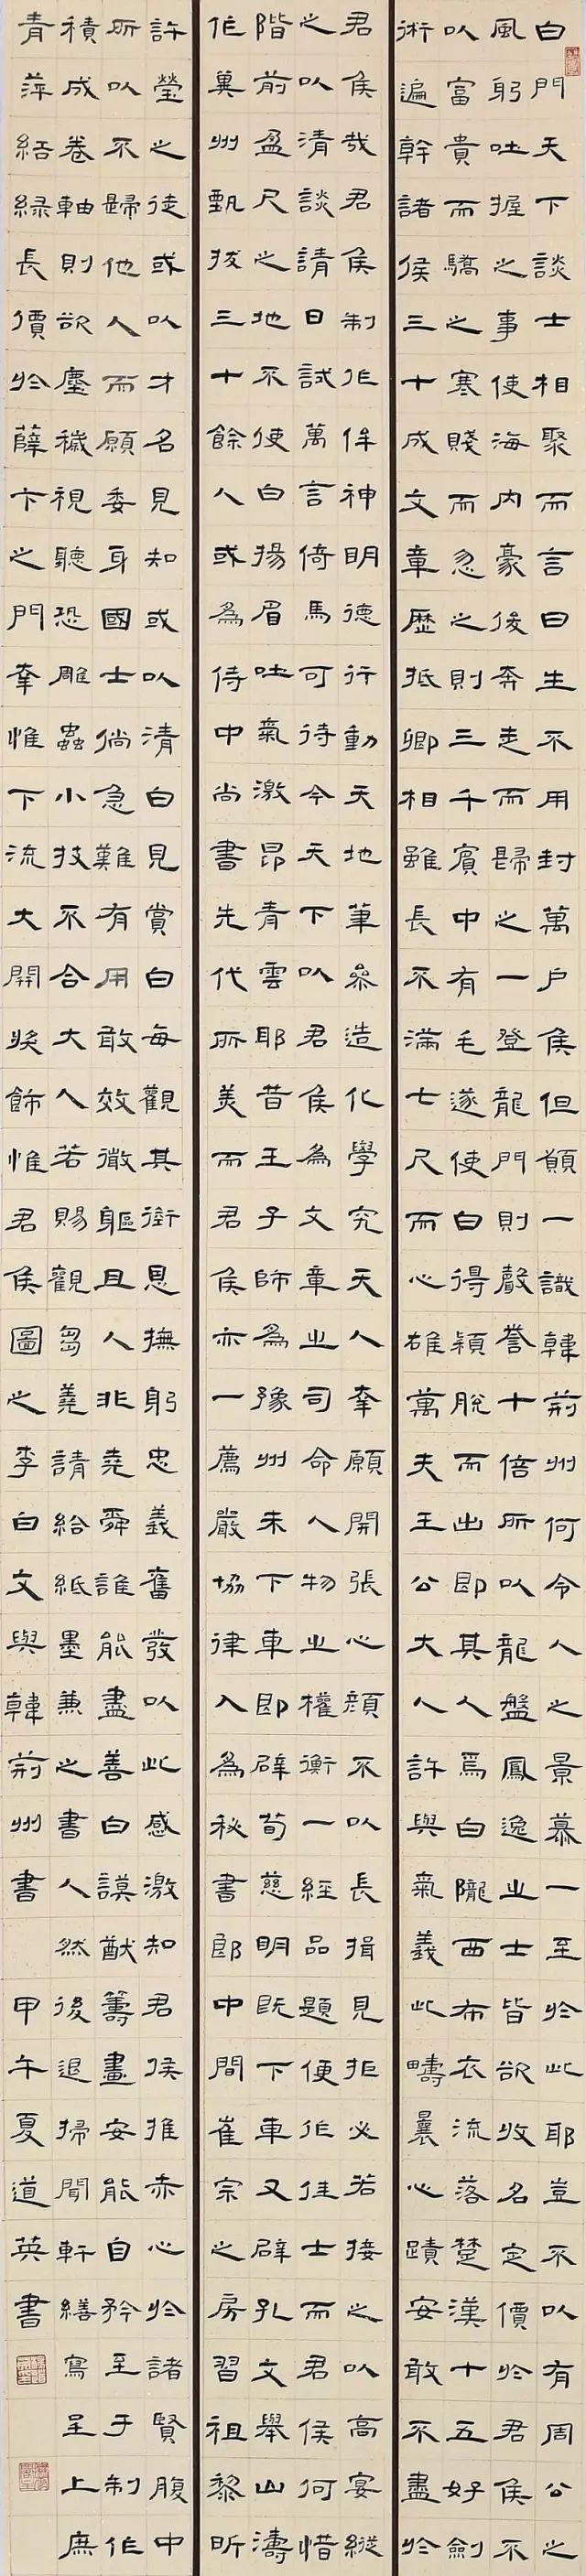 白門天下談士相聚而言曰生不用封萬戶侯但願一識韓荊州何令人之景慕一至於此耶豈不以有周公之
風躬吐握之事使海內豪俊奔走而歸之一登龍門則聲譽十倍所以龍盤鳳逸之士皆欲收名定價於君侯不
以富貴而驕之寒賤而忽之則三千賓中有毛遂使白得穎脫而出即其人焉白隴西布衣流落楚漢十五好劍
術遍幹諸侯三十成文章歷抵卿相雖長不滿七尺而心雄萬夫王公大人許與氣義此疇曩心蹟安敢不盡於
君侯哉君侯制作侔神明德行動天地筆參造化學究天人幸願開張心顏不以長揖見拒必若接之以高宴縱
之以清談請日試萬言倚馬可待今天下以君侯為文章之司命人物之權衡一經品題便作佳士而君侯何惜
階前盈尺之地不使白揚眉吐氣激昂青雲耶昔王子師為豫州未下車即辟荀慈明既下車又辟孔文舉山濤
作冀州甄拔三十餘人或為侍中尚書先代所美而君侯亦一薦嚴協律入為秘書郎中間崔宗之房習祖黎昕
許瑩之徒或以才名見知或以清白見賞白每觀其銜恩撫躬忠義奮發以此感激知君侯推赤心於諸賢腹中
所以不歸他人而願委身國士倘急難有用敢效微軀且人非堯舜誰能盡善白謨猷籌畫安能自矜至于制作
積成卷軸則欲塵穢視聽恐雕蟲小技不合大人若賜觀芻蕘請給紙墨兼之書人然後退掃閒軒繕寫呈上庶
青萍結綠長價於薛卞之門幸惟下流大開獎飾惟君侯圖之李白文與韓荊州書 甲午夏道英書